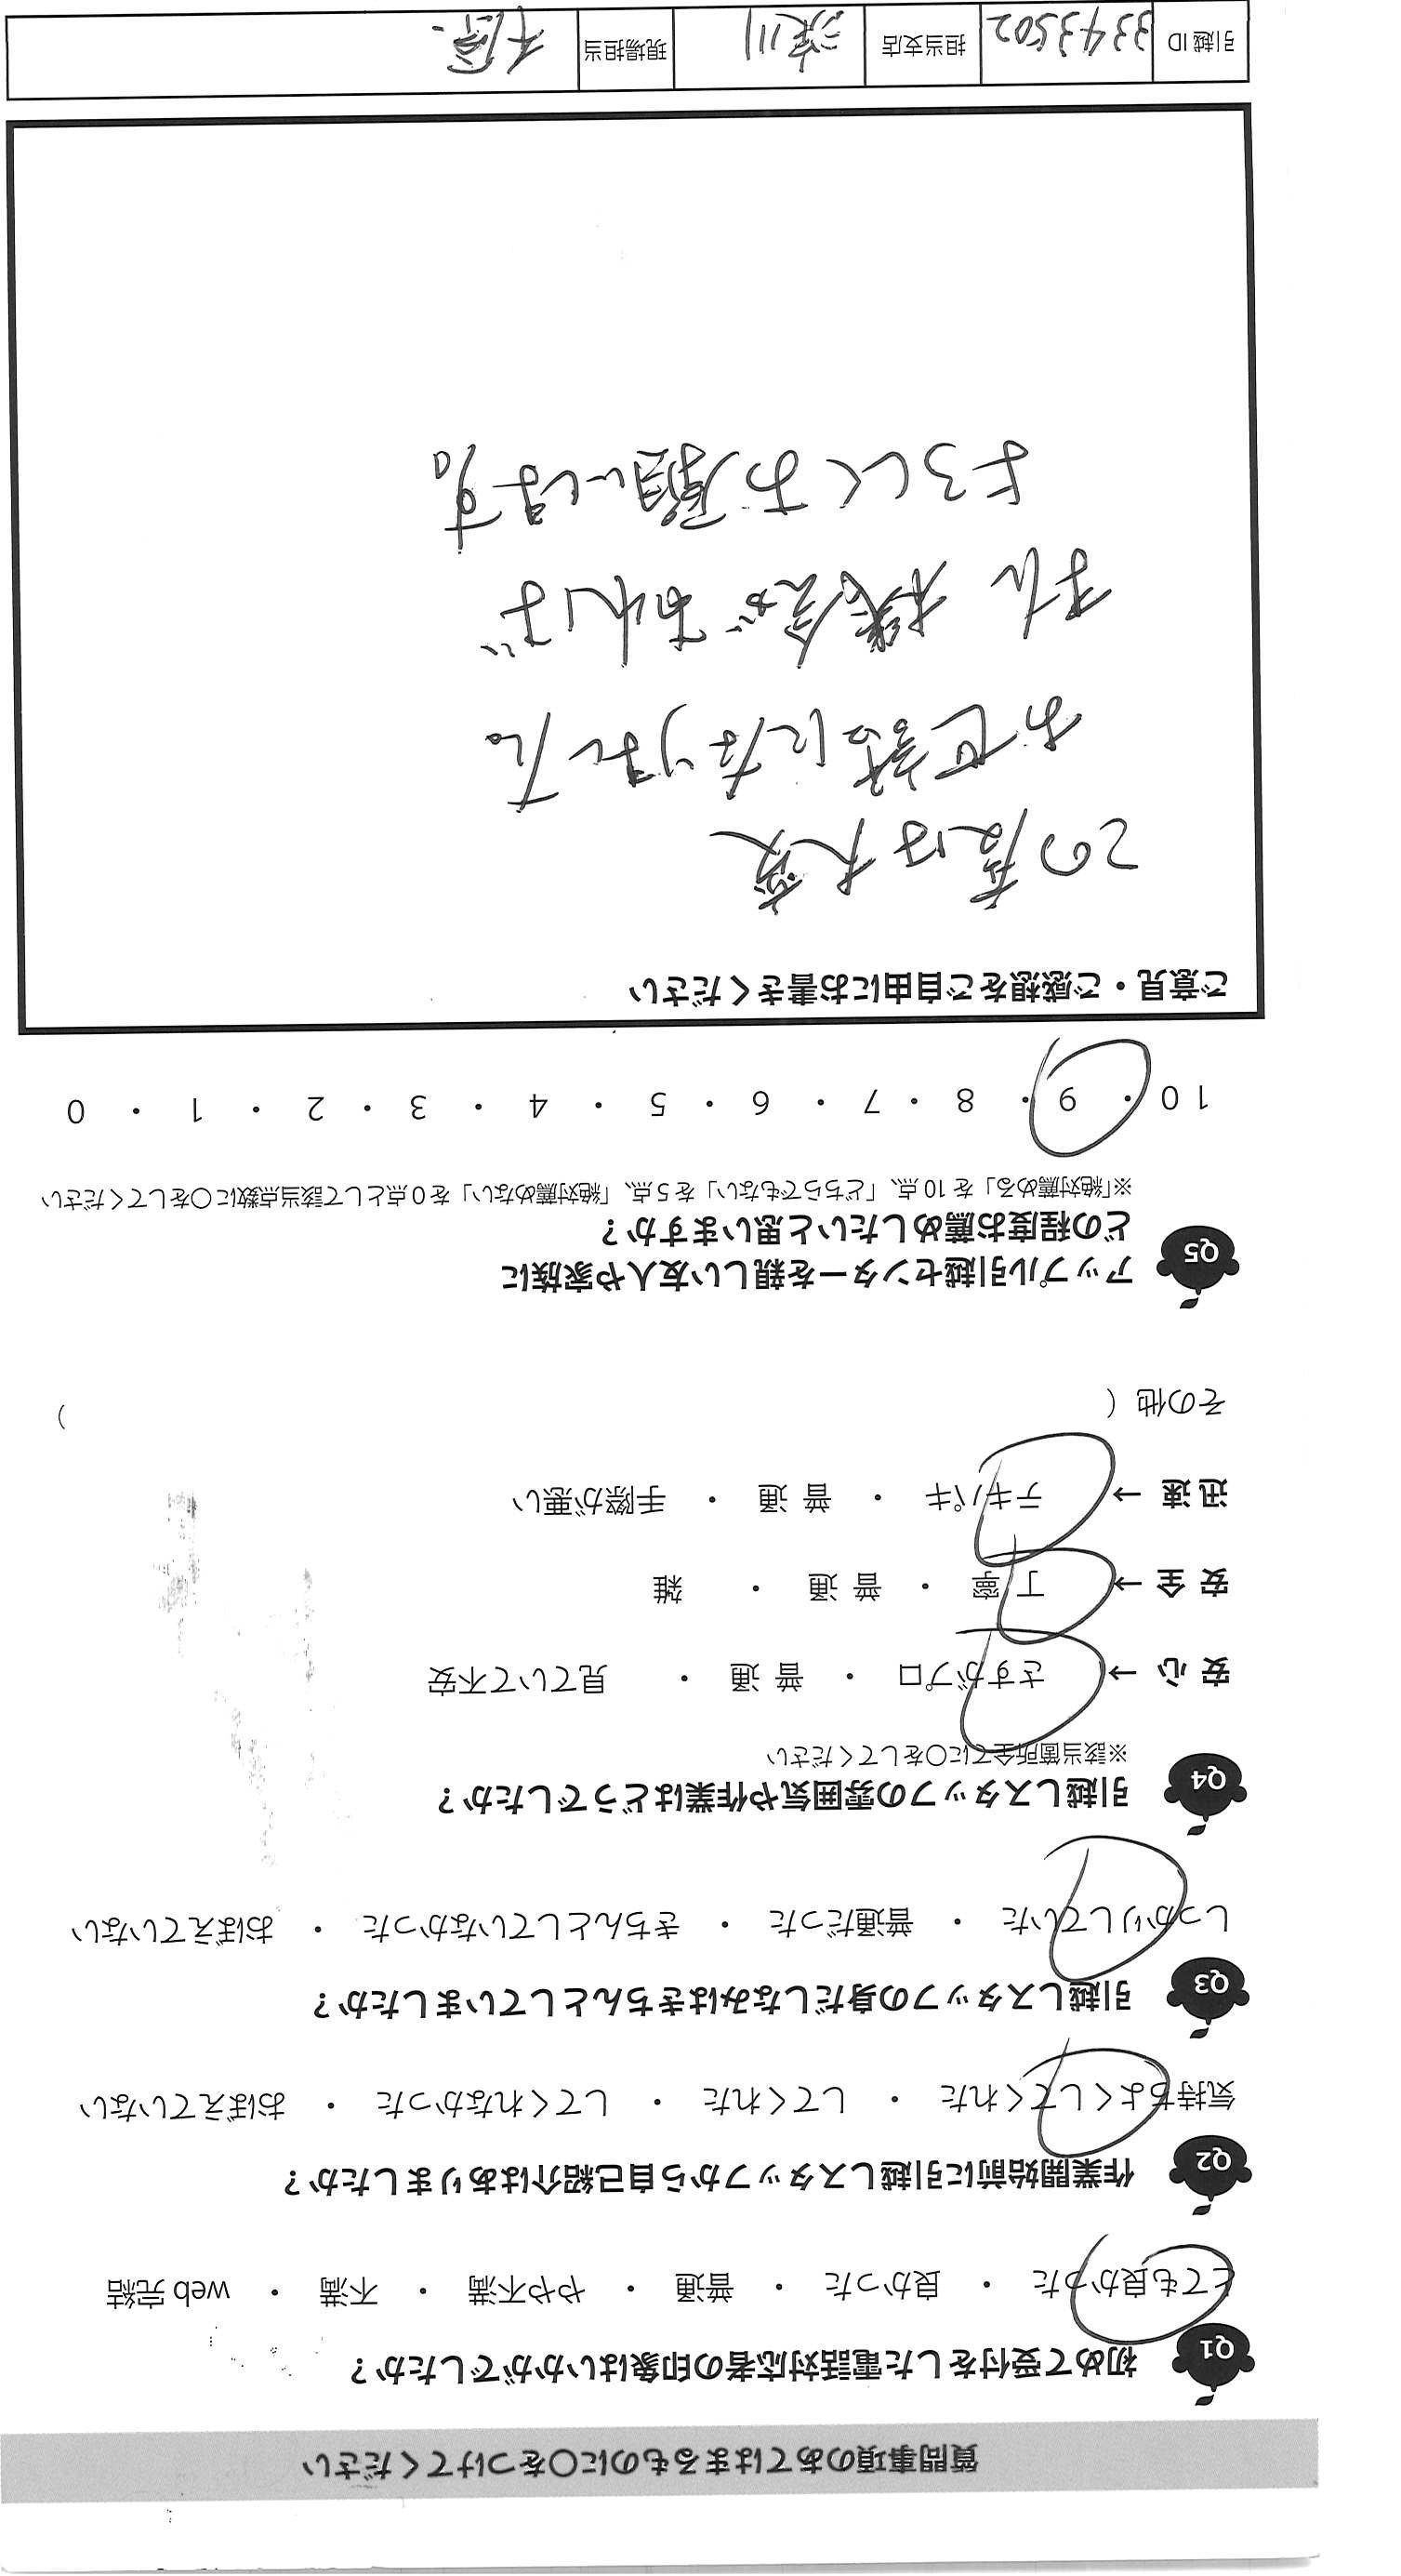 質問事項のあてはまるものに○をつけてください
Q1 初めて受付をした電話対応者の印象はいかがでしたか?
とても良かった ・ 良かった ・ 普通 ・ やや不満 ・ 不満 ・ web 完結
Q2 作業開始前に引越しスタッフから自己紹介はありましたか?
気持ちよくしてくれた ・ してくれた ・ してくれなかった ・ おぼえていない
Q3 引越しスタッフの身だしなみはきちんとしていましたか?
しっかりしていた ・ 普通だった ・ きちんとしていなかった ・ おぼえていない
Q4 引越しスタッフの雰囲気や作業はどうでしたか?
※該当箇所全てに○をしてください
安 心 → さすがプロ ・ 普 通 ・ 見ていて不安
安 全 → 丁 寧 ・ 普 通 ・ 雑
迅 速 → テキパキ ・ 普 通 ・ 手際が悪い
その他 ( )
Q5 アップル引越センターを親しい友人や家族に
どの程度お薦めしたいと思いますか?
※「絶対薦める」を 10 点、「どちらでもない」を 5 点、「絶対薦めない」を 0 点として該当点数に○をしてください
10 ・ 9 ・ 8 ・ 7 ・ 6 ・ 5 ・ 4 ・ 3 ・ 2 ・ 1 ・ 0
ご意見・ご感想をご自由にお書きください
この度は大変
お世話になりました。
また機会があれば
よろしくお願いします。
引越 ID 3343502 担当支店 深川 現場担当